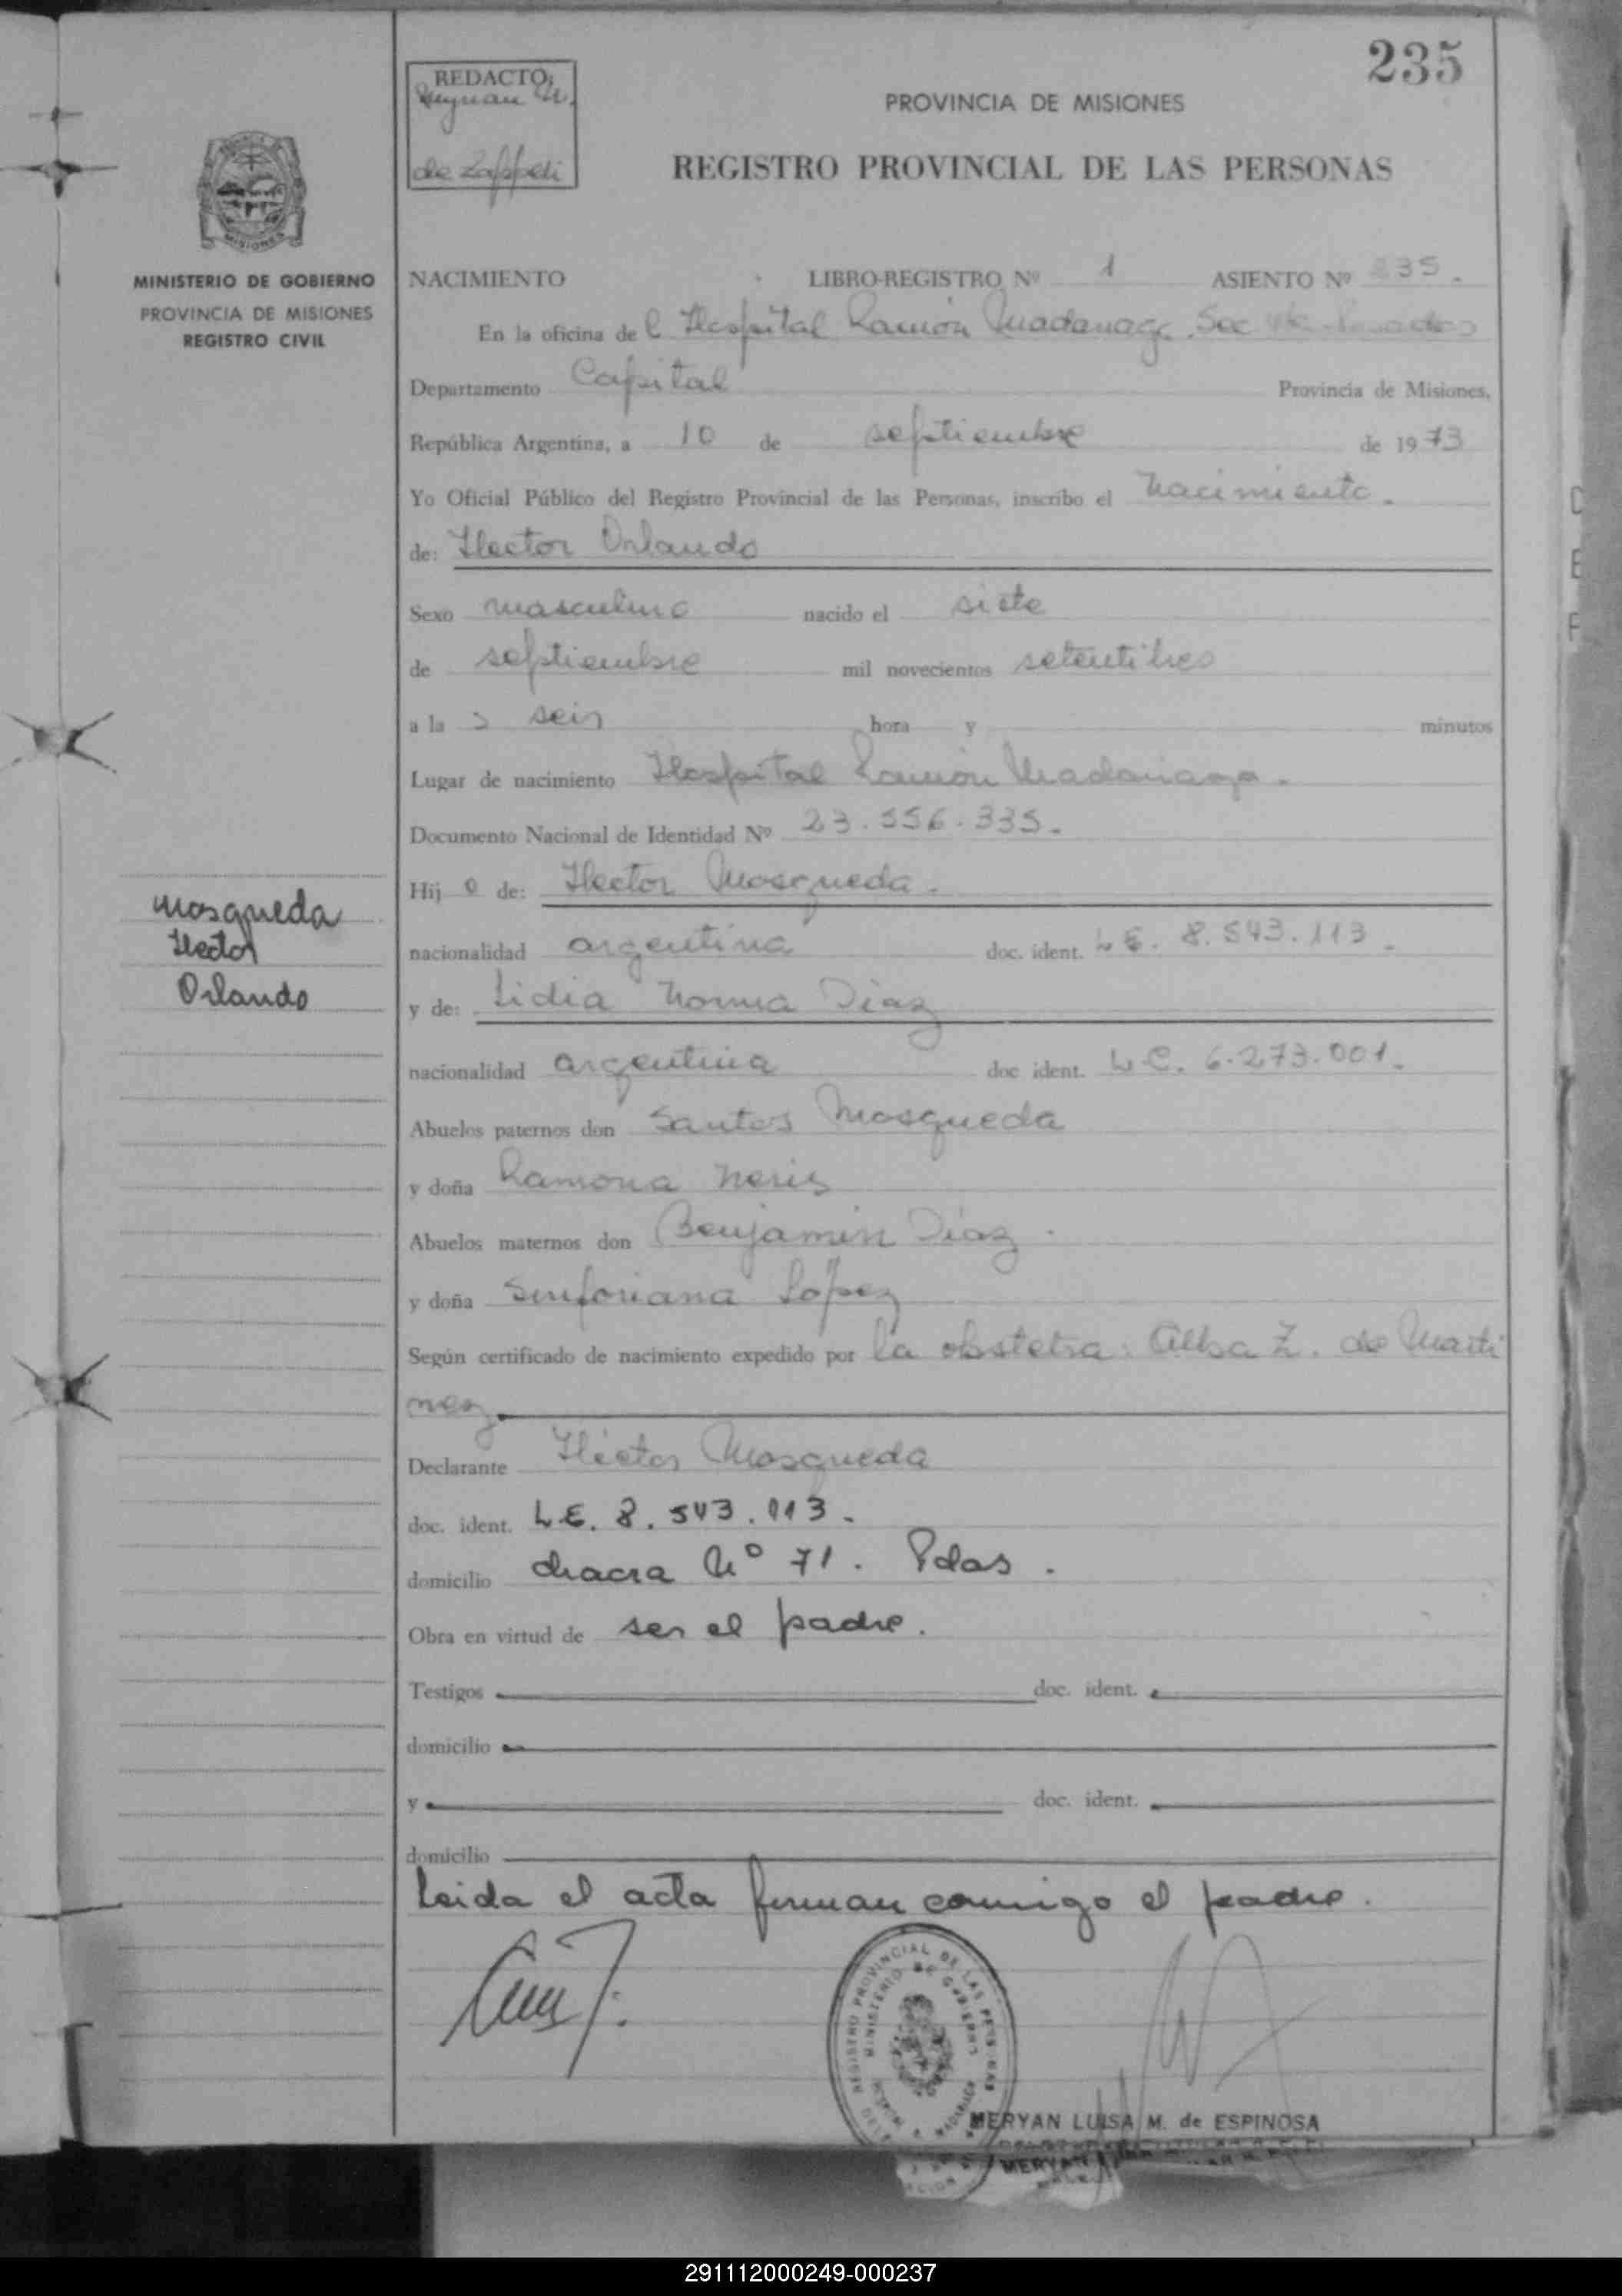 235
REDACTO:
de Zappeli
PROVINCIA DE MISIONES
REGISTRO PROVINCIAL DE LAS PERSONAS
MISIONES
MINISTERIO DE GOBIERNO
PROVINCIA DE MISIONES
REGISTRO CIVIL
NACIMIENTO LIBRO-REGISTRO Nº 1 ASIENTO Nº 235.
En la oficina de l Hospital Ramón Madariaga. Sec
Departamento Capital Provincia de Misiones,
República Argentina, a 10 de septiembre de 1973
Yo Oficial Público del Registro Provincial de las Personas, inscribo el nacimiento.
de: Hector Orlando
Sexo masculino nacido el siete
de septiembre mil novecientos setentitres
a la s seis hora y minutos
Lugar de nacimiento Hospital Ramón Madariaga.
Documento Nacional de Identidad Nº 23.556.335.
Hij o de: Hector Mosqueda.
Mosqueda
Hector
Orlando
nacionalidad argentina doc. ident. L E. 8.543.113.
y de: Lidia Norma Diaz
nacionalidad argentina doc ident. L C. 6.273.001.
Abuelos paternos don Santos Mosqueda
y doña Ramona Neris
Abuelos maternos don Benjamin Diaz.
y doña Sinforiana López
Según certificado de nacimiento expedido por la obstetra: Alba Z. de Marti
nez
Declarante Héctor Mosqueda
doc. ident. L.E. 8.543.113.
domicilio chacra Nº 71. Pdas.
Obra en virtud de ser el padre.
Testigos doc. ident.
domicilio
y doc. ident.
domicilio
Leida el acta firman conmigo el padre.
REGISTRO PROVINCIAL DE LAS PERSONAS
MINISTERIO DE GOBIERNO
MERYAN LUISA M. de ESPINOSA
MERYAN
291112000249-000237